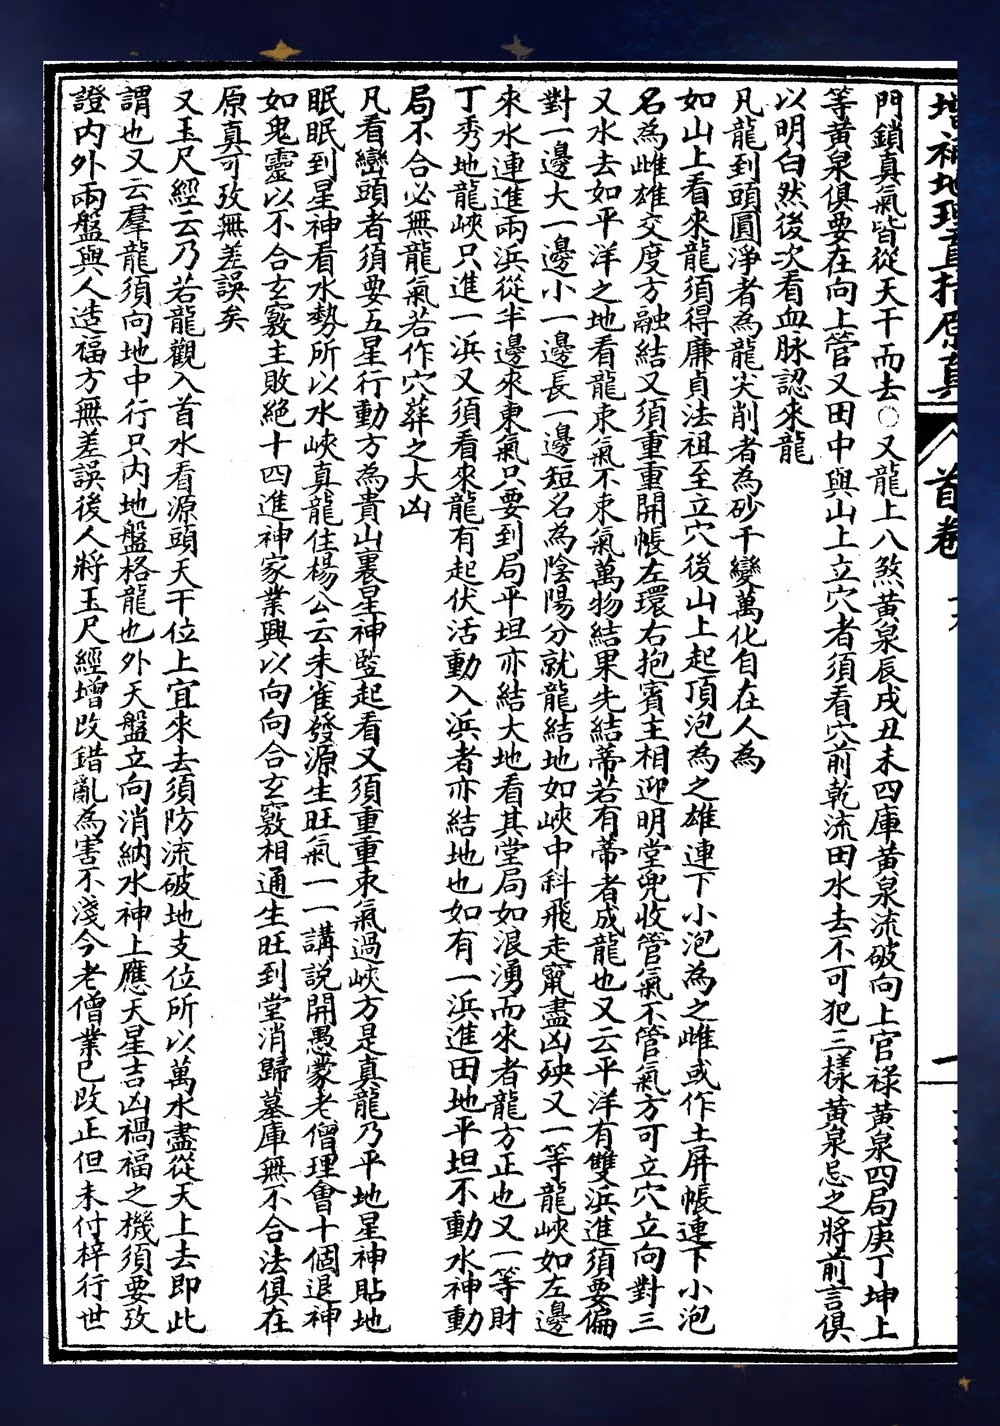 增補地理直指原真 首卷
門鎖真氣皆從天干而去○又龍上八煞黃泉辰戌丑未四庫黃泉流破向上官祿黃泉四局庚丁坤上
等黃泉俱要在向上管又田中與山上立穴者須看穴前乾流田水去不可犯三樣黃泉忌之將前言俱
以明白然後次看血脉認來龍
凡龍到頭圓淨者為龍尖削者為砂千變萬化自在人為
如山上看來龍須得廉貞法祖至立穴後山上起頂泡為之雄連下小泡為之雌或作土屏帳連下小泡
名為雌雄交度方融結又須重重開帳左環右抱賓主相迎明堂兜收管氣不管氣方可立穴立向對三
又水去如平洋之地看龍束氣不束氣萬物結果先結蒂若有蒂者成龍也又云平洋有雙浜進須要偏
對一邊大一邊小一邊長一邊短名為陰陽分就龍結地如峽中斜飛走竄盡凶殃又一等龍峽如左邊
來水連進兩浜從半邊來束氣只要到局平坦亦結大地看其堂局如浪湧而來者龍方正也又一等財
丁秀地龍峽只進一浜又須看來龍有起伏活動入浜者亦結地也如有一浜進田地平坦不動水神動
局不合必無龍氣若作穴葬之大凶
凡看巒頭者須要五星行動方為貴山裏星神竪起看又須重重束氣過峽方是真龍乃平地星神貼地
眠眠到星神看水勢所以水峽真龍住楊公云未雀發源生旺氣一一講說開愚蒙老僧理會十個退神
如鬼靈以不合玄竅主敗絕十四進神家業興以向向合玄竅相通生旺到堂消歸墓庫無不合法俱在
原真可攷無差誤矣
又玉尺經云乃若龍觀入首水看源頭天干位上宜來去須防流破地支位所以萬水盡從天上去即此
謂也又云羣龍須向地中行只內地盤格龍也外天盤立向消納水神上應天星吉凶禍福之機須要攷
證內外兩盤與人造福方無差誤後人將玉尺經增改錯亂為害不淺今老僧業已改正但未付梓行世